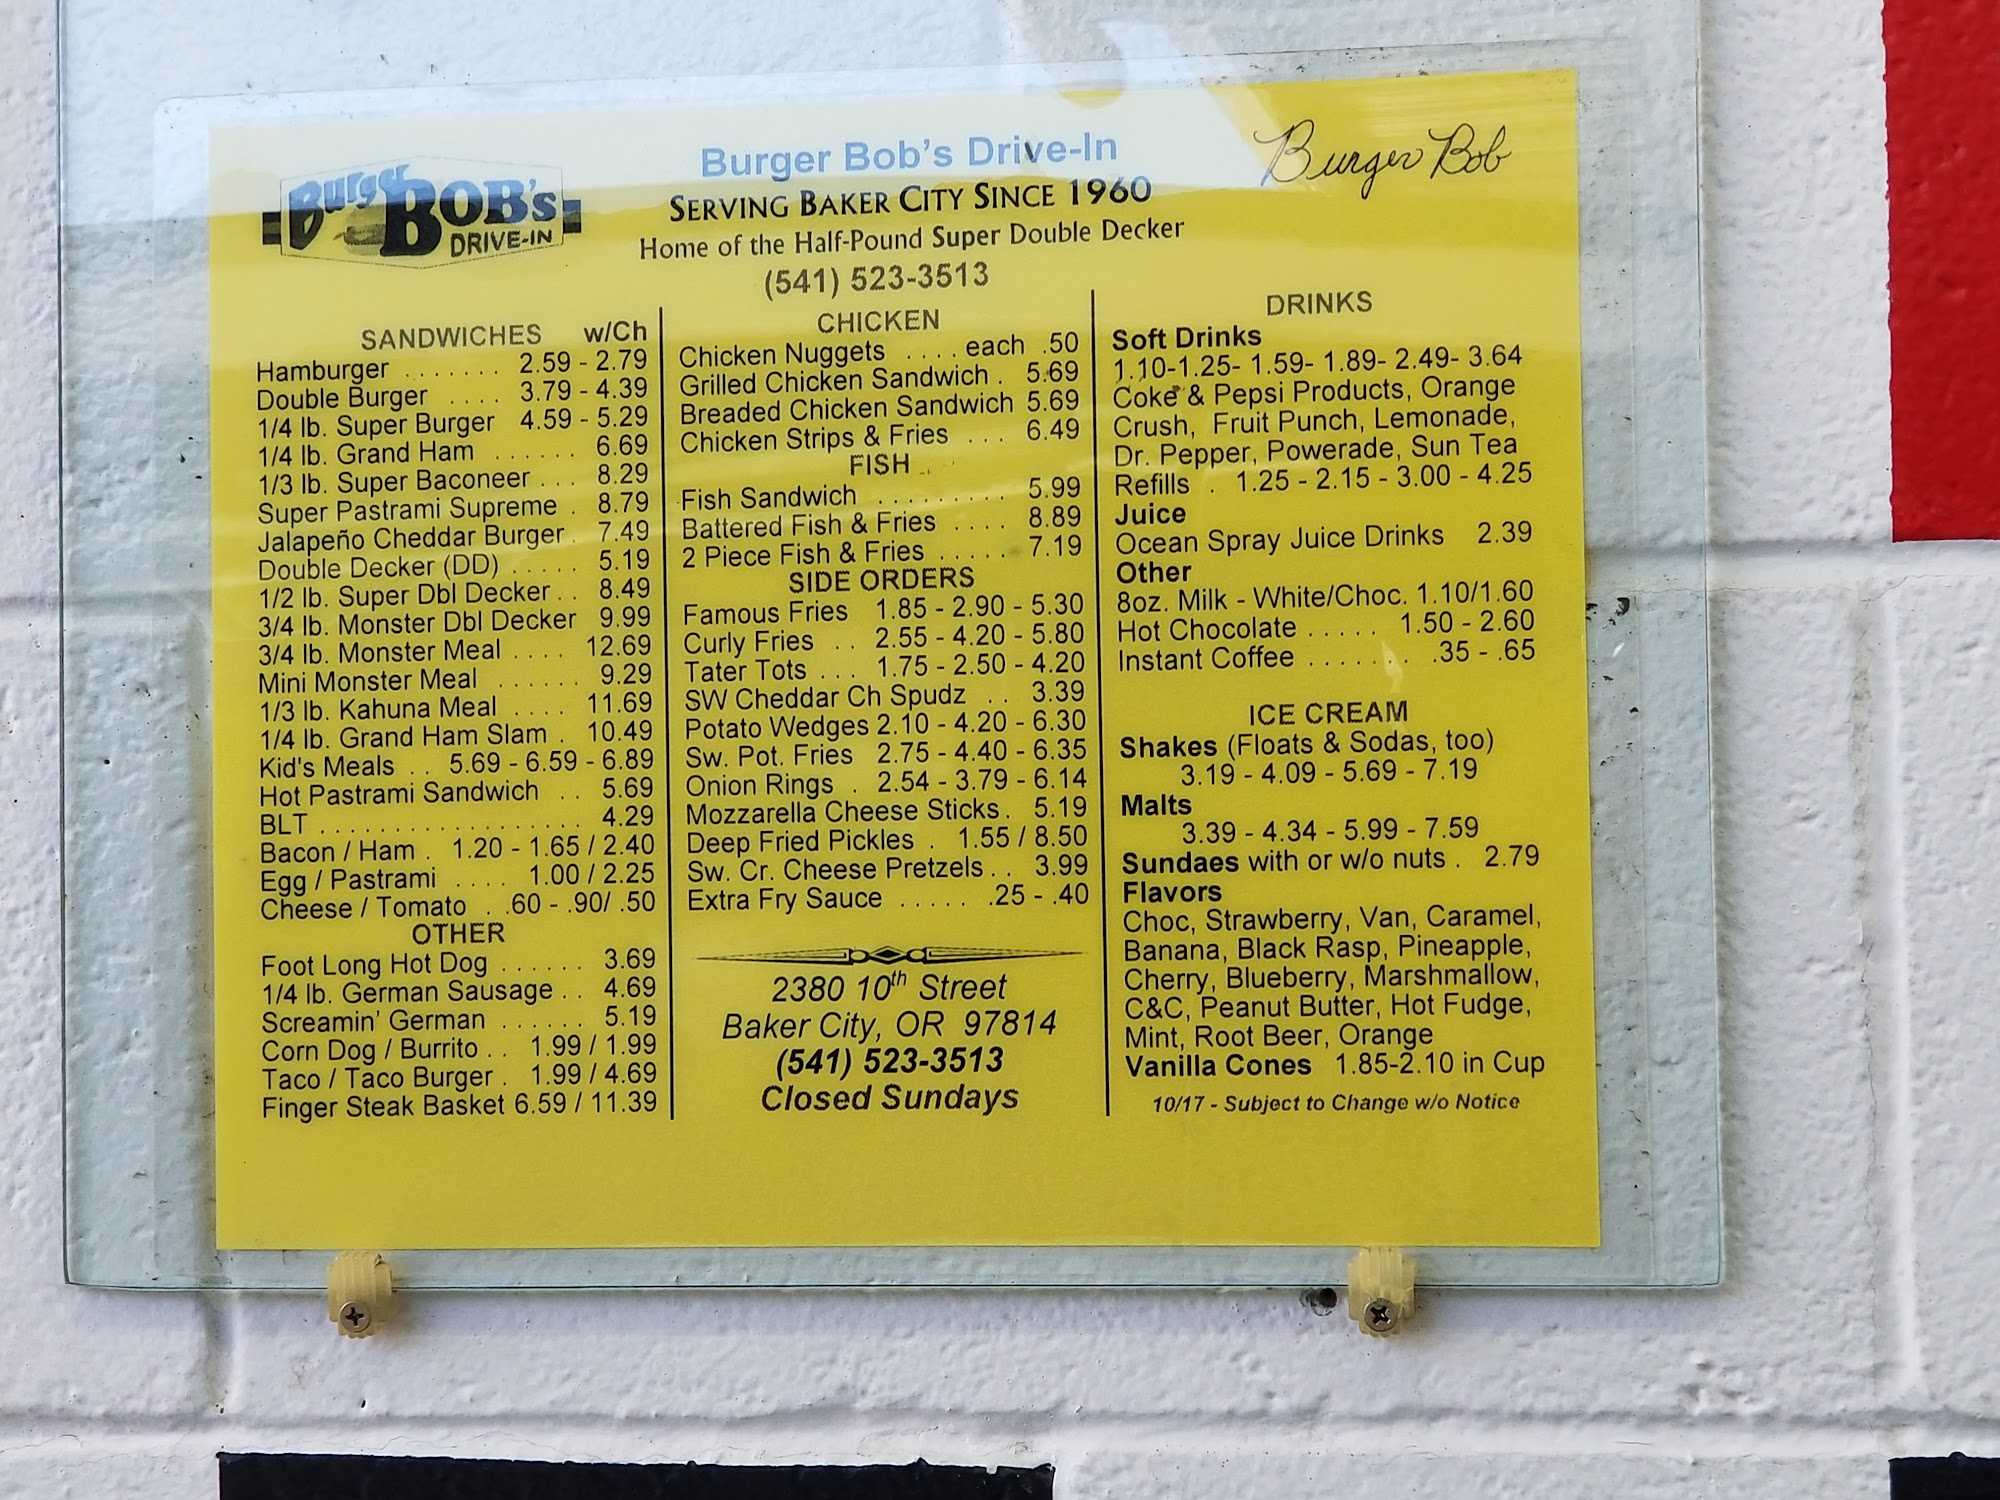 Burger BOB'S
DRIVE-IN
Burger Bob's Drive-In
SERVING BAKER CITY SINCE 1960
Home of the Half-Pound Super Double Decker
(541) 523-3513
Burger Bob
SANDWICHES w/Ch
Hamburger ....... 2.59 - 2.79
Double Burger .... 3.79 - 4.39
1/4 lb. Super Burger 4.59 - 5.29
1/4 lb. Grand Ham ...... 6.69
1/3 lb. Super Baconeer ... 8.29
Super Pastrami Supreme . 8.79
Jalapeño Cheddar Burger. 7.49
Double Decker (DD) ..... 5.19
1/2 lb. Super Dbl Decker.. 8.49
3/4 lb. Monster Dbl Decker 9.99
3/4 lb. Monster Meal .... 12.69
Mini Monster Meal ...... 9.29
1/3 lb. Kahuna Meal .... 11.69
1/4 lb. Grand Ham Slam . 10.49
Kid's Meals .. 5.69 - 6.59 - 6.89
Hot Pastrami Sandwich .. 5.69
BLT .................. 4.29
Bacon / Ham . 1.20 - 1.65 / 2.40
Egg / Pastrami .... 1.00 / 2.25
Cheese / Tomato . .60 - .90/ .50
OTHER
Foot Long Hot Dog ...... 3.69
1/4 lb. German Sausage .. 4.69
Screamin' German ...... 5.19
Corn Dog / Burrito .. 1.99 / 1.99
Taco / Taco Burger . 1.99 / 4.69
Finger Steak Basket 6.59 / 11.39
CHICKEN
Chicken Nuggets .... each .50
Grilled Chicken Sandwich . 5.69
Breaded Chicken Sandwich 5.69
Chicken Strips & Fries ... 6.49
FISH
Fish Sandwich ......... 5.99
Battered Fish & Fries .... 8.89
2 Piece Fish & Fries ..... 7.19
SIDE ORDERS
Famous Fries 1.85 - 2.90 - 5.30
Curly Fries .. 2.55 - 4.20 - 5.80
Tater Tots ... 1.75 - 2.50 - 4.20
SW Cheddar Ch Spudz .. 3.39
Potato Wedges 2.10 - 4.20 - 6.30
Sw. Pot. Fries 2.75 - 4.40 - 6.35
Onion Rings . 2.54 - 3.79 - 6.14
Mozzarella Cheese Sticks. 5.19
Deep Fried Pickles . 1.55 / 8.50
Sw. Cr. Cheese Pretzels.. 3.99
Extra Fry Sauce ..... .25 - .40
2380 10th Street
Baker City, OR 97814
(541) 523-3513
Closed Sundays
DRINKS
Soft Drinks
1.10-1.25- 1.59- 1.89- 2.49- 3.64
Coke & Pepsi Products, Orange
Crush, Fruit Punch, Lemonade,
Dr. Pepper, Powerade, Sun Tea
Refills . 1.25 - 2.15 - 3.00 - 4.25
Juice
Ocean Spray Juice Drinks 2.39
Other
8oz. Milk - White/Choc. 1.10/1.60
Hot Chocolate ..... 1.50 - 2.60
Instant Coffee ....... .35 - .65
ICE CREAM
Shakes (Floats & Sodas, too)
3.19 - 4.09 - 5.69 - 7.19
Malts
3.39 - 4.34 - 5.99 - 7.59
Sundaes with or w/o nuts . 2.79
Flavors
Choc, Strawberry, Van, Caramel,
Banana, Black Rasp, Pineapple,
Cherry, Blueberry, Marshmallow,
C&C, Peanut Butter, Hot Fudge,
Mint, Root Beer, Orange
Vanilla Cones 1.85-2.10 in Cup
10/17 - Subject to Change w/o Notice